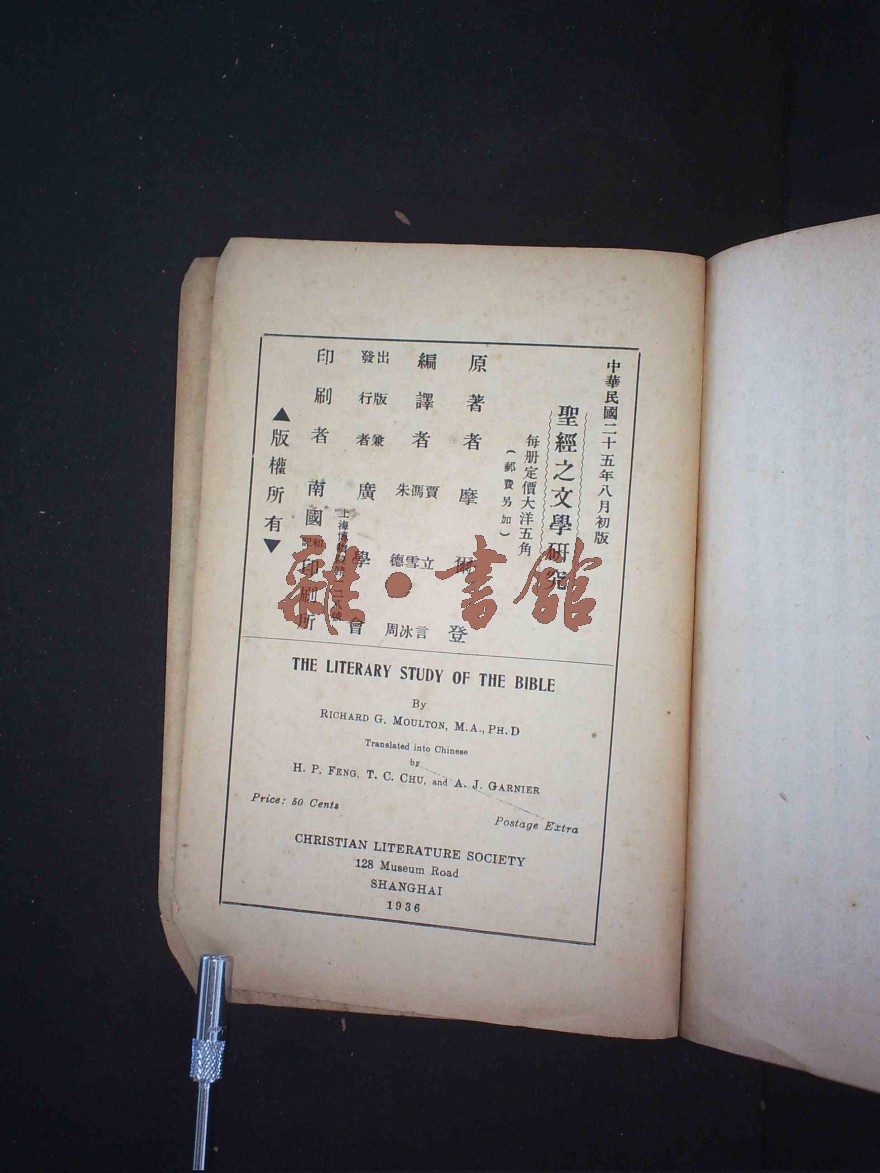 中華民國二十五年八月初版
聖經之文學研究
每册定價大洋五角
(郵費另加)
原著者 摩爾登
編譯者 賈立言 馮雪冰 朱德周
出版兼發行者 廣學會
上海博物院路一二八號
印刷者 南國印刷所
▲版權所有▼
雜·書館
THE LITERARY STUDY OF THE BIBLE
By
RICHARD G. MOULTON, M.A., PH.D
Translated into Chinese
by
H. P. FENG, T. C. CHU, and A. J. GARNIER
Price: 50 Cents
Postage Extra
CHRISTIAN LITERATURE SOCIETY
128 Museum Road
SHANGHAI
1936